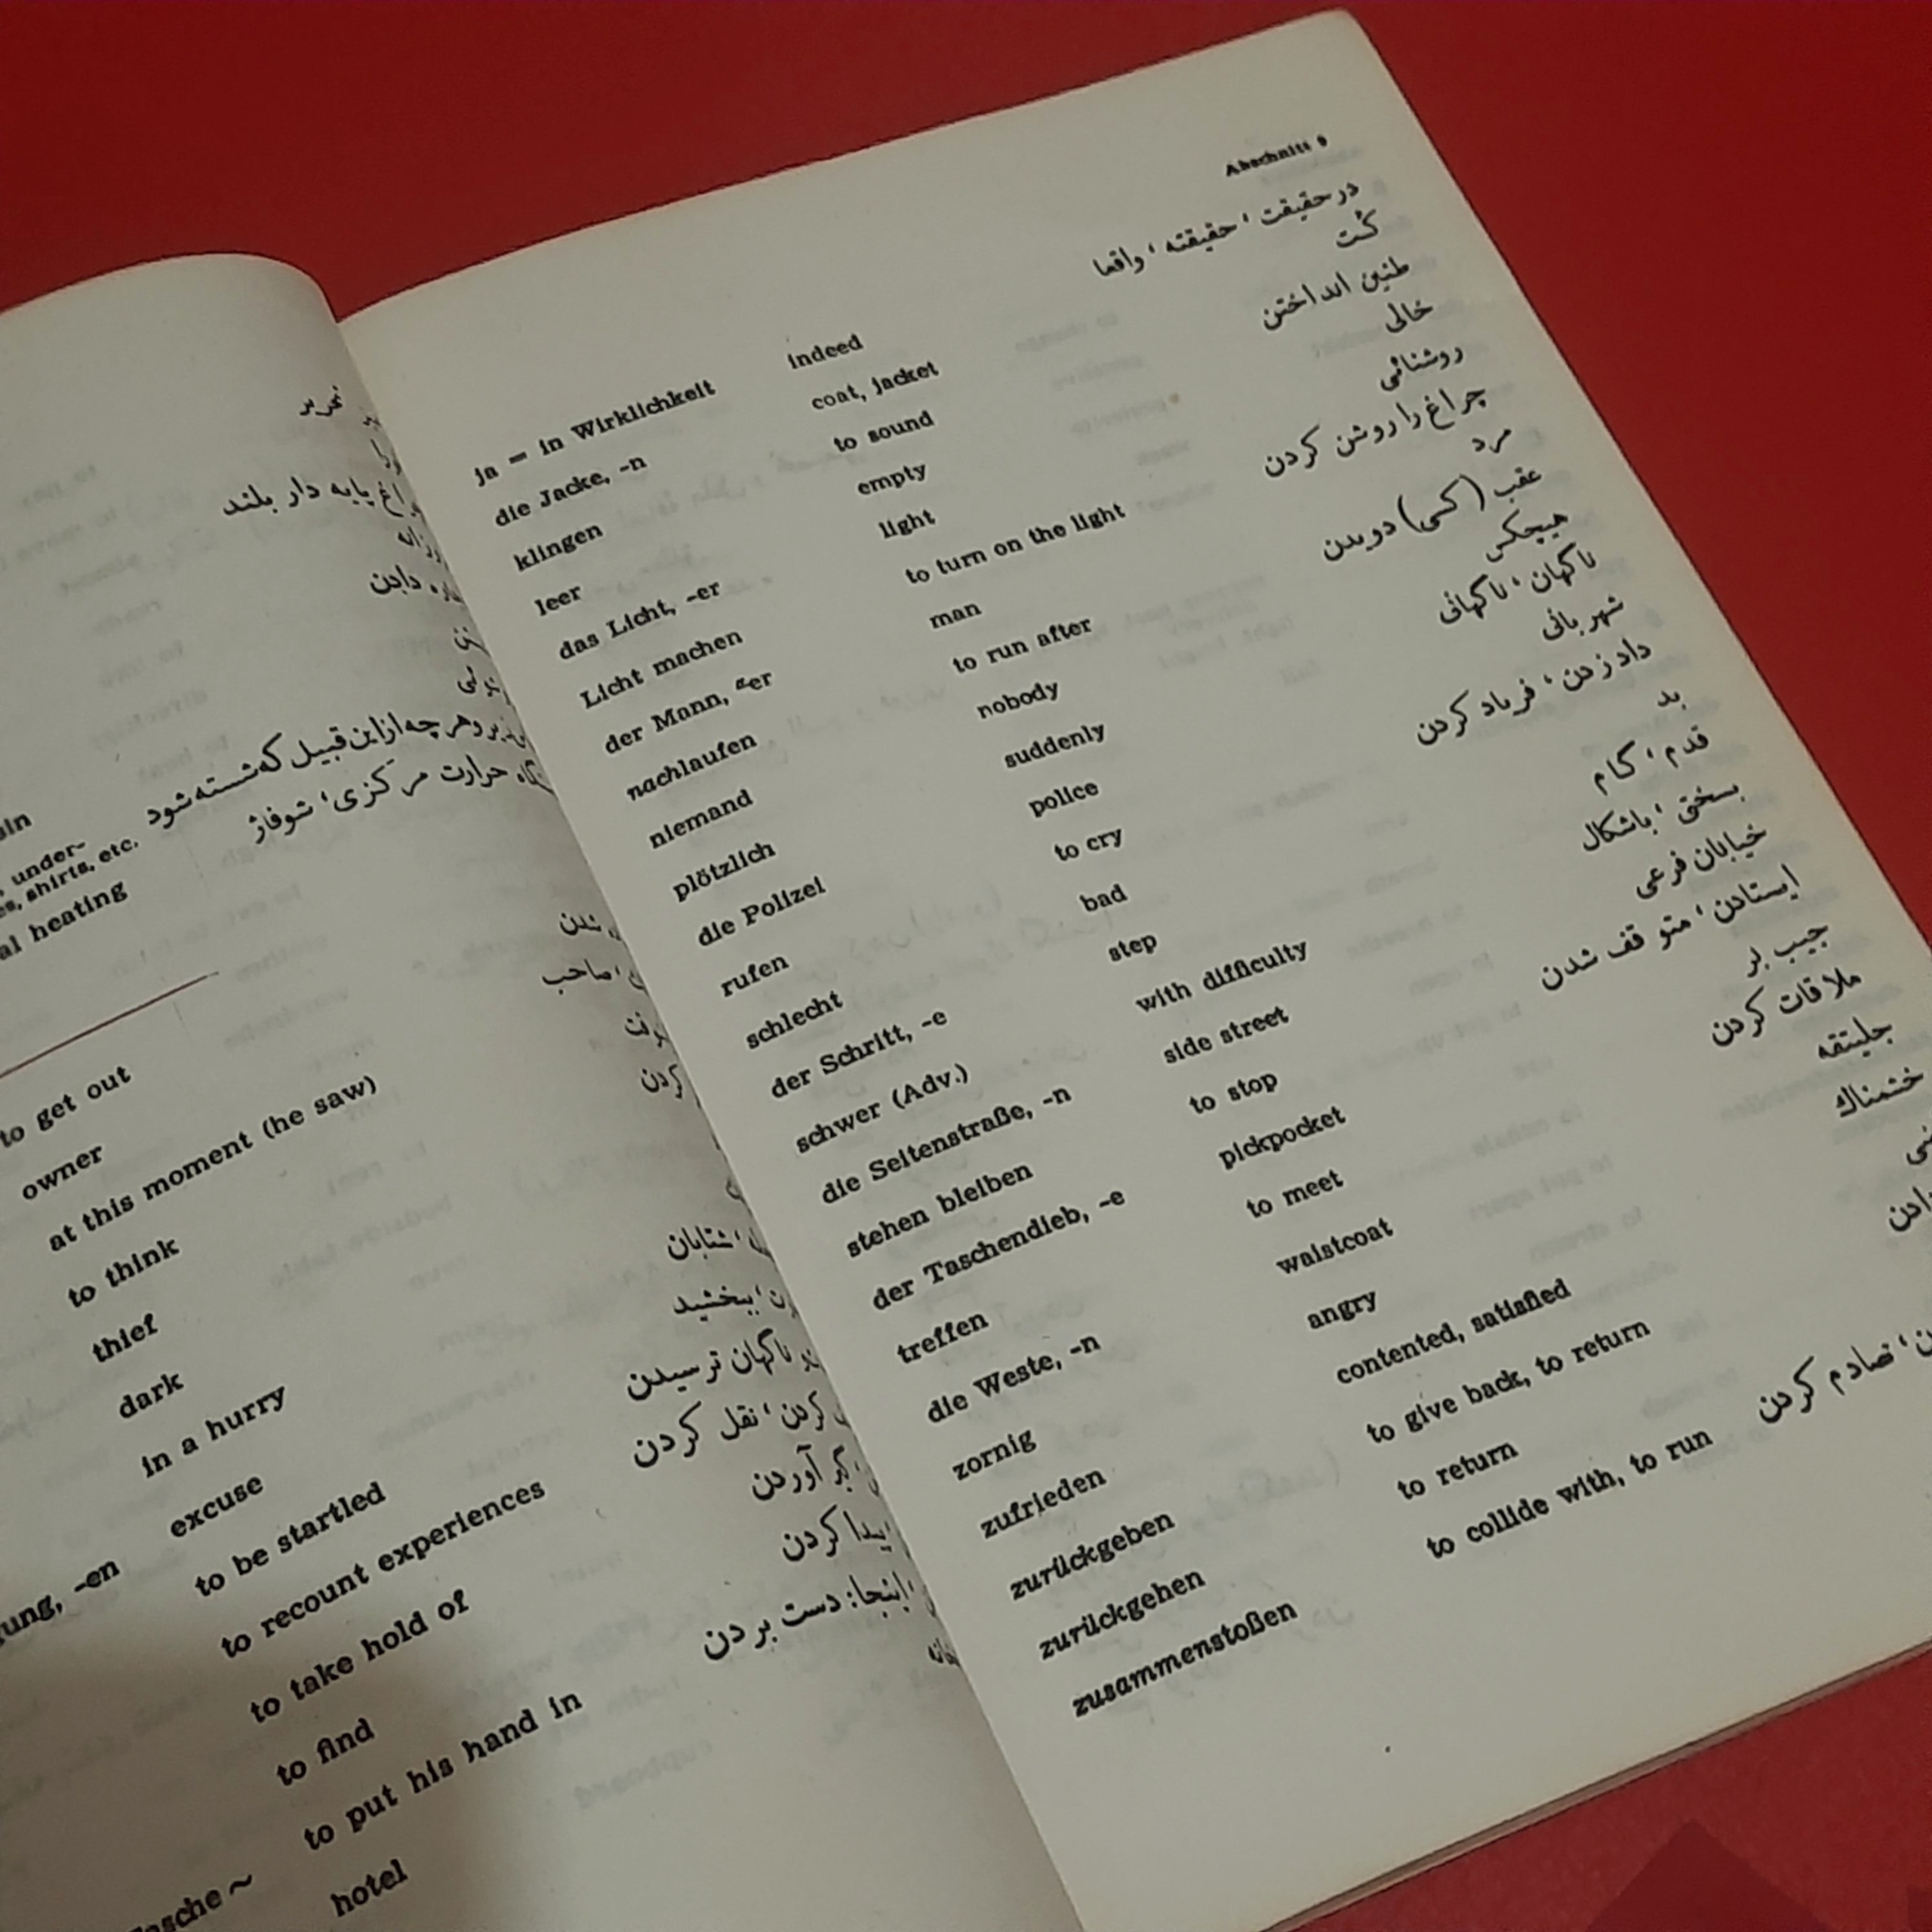 تحریر
پایه دار بلند
دادن
وهر چه از این قبیل که شسته شود
under-
shirts, etc.
حرارت مرکزی، شوفاژ
heating
شدن
صاحب
to get out
owner
کردن
at this moment (he saw)
to think
thief
شتابان
dark
ببخشید
in a hurry
ناگهان ترسیدن
excuse
کردن، نقل کردن
-en to be startled
to recount experiences
to take hold of
پیدا کردن
to find
اینجا: دست بردن
to put his hand in
hotel
Abschnitt 9
ja = in Wirklichkeit indeed در حقیقت، حقیقته، واقعا
die Jacke, -n coat, jacket کُت
klingen to sound طنین انداختن
leer empty خالی
das Licht, -er light روشنائی
Licht machen to turn on the light چراغ را روشن کردن
der Mann, ⸚er man مرد
nachlaufen to run after عقب (کسی) دویدن
niemand nobody هیچکس
plötzlich suddenly ناگهان، ناگهانی
die Polizei police شهربانی
rufen to cry داد زدن، فریاد کردن
schlecht bad بد
der Schritt, -e step قدم، گام
schwer (Adv.) with difficulty بسختی، باشکال
die Seitenstraße, -n side street خیابان فرعی
stehen bleiben to stop ایستادن، متوقف شدن
der Taschendieb, -e pickpocket جیب بر
treffen to meet ملاقات کردن
die Weste, -n waistcoat جلیتقه
zornig angry خشمناك
zufrieden contented, satisfied
zurückgeben to give back, to return
zurückgehen to return
zusammenstoßen to collide with, to run تصادم کردن